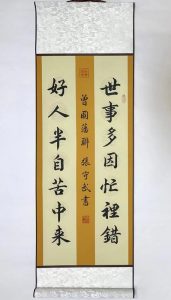 世事多因忙裡錯
曾國藩聯 張守武書
好人半自苦中来